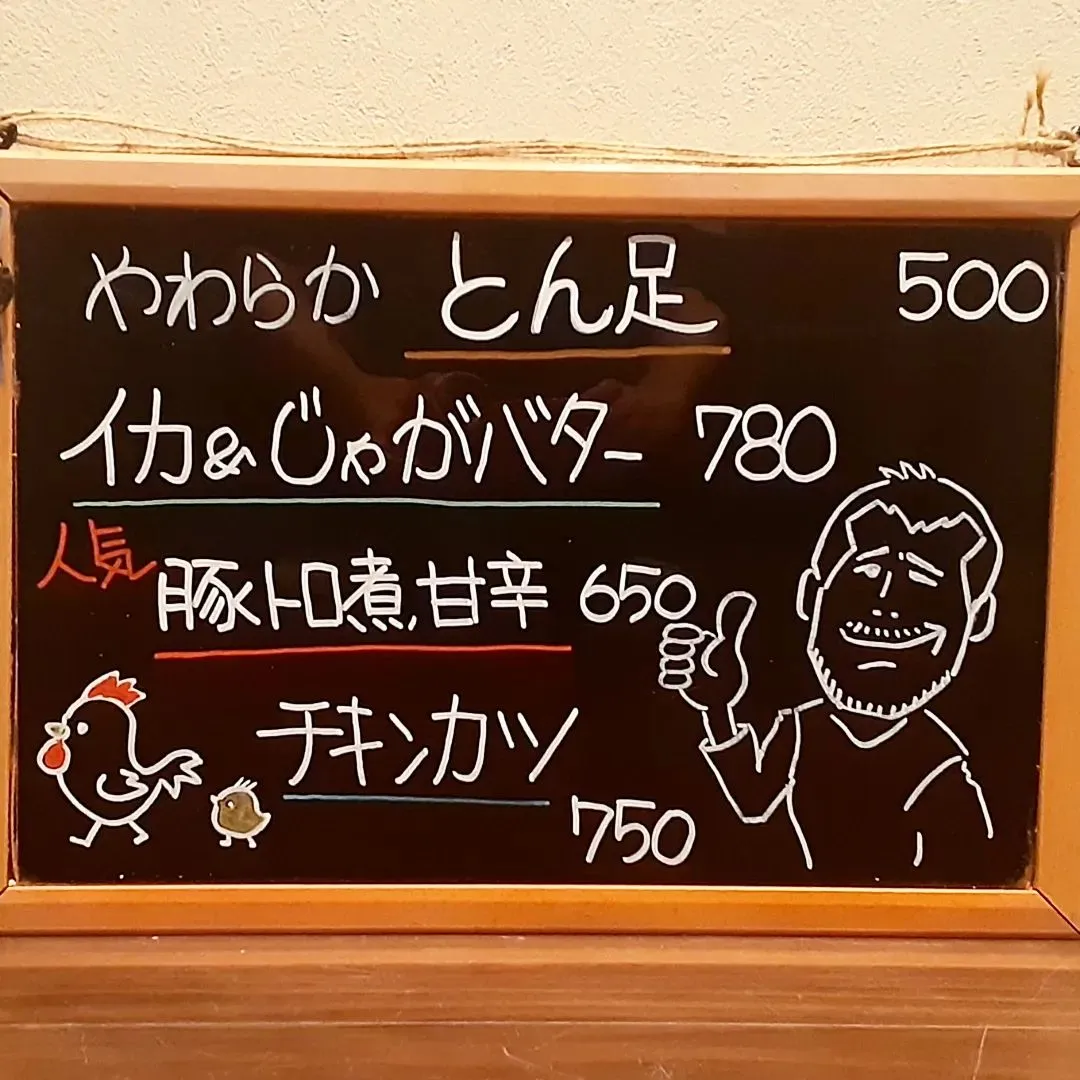 やわらか とん足 500
イカ&じゃがバター 780
人気 豚トロ煮,甘辛 650
チキンカツ
750